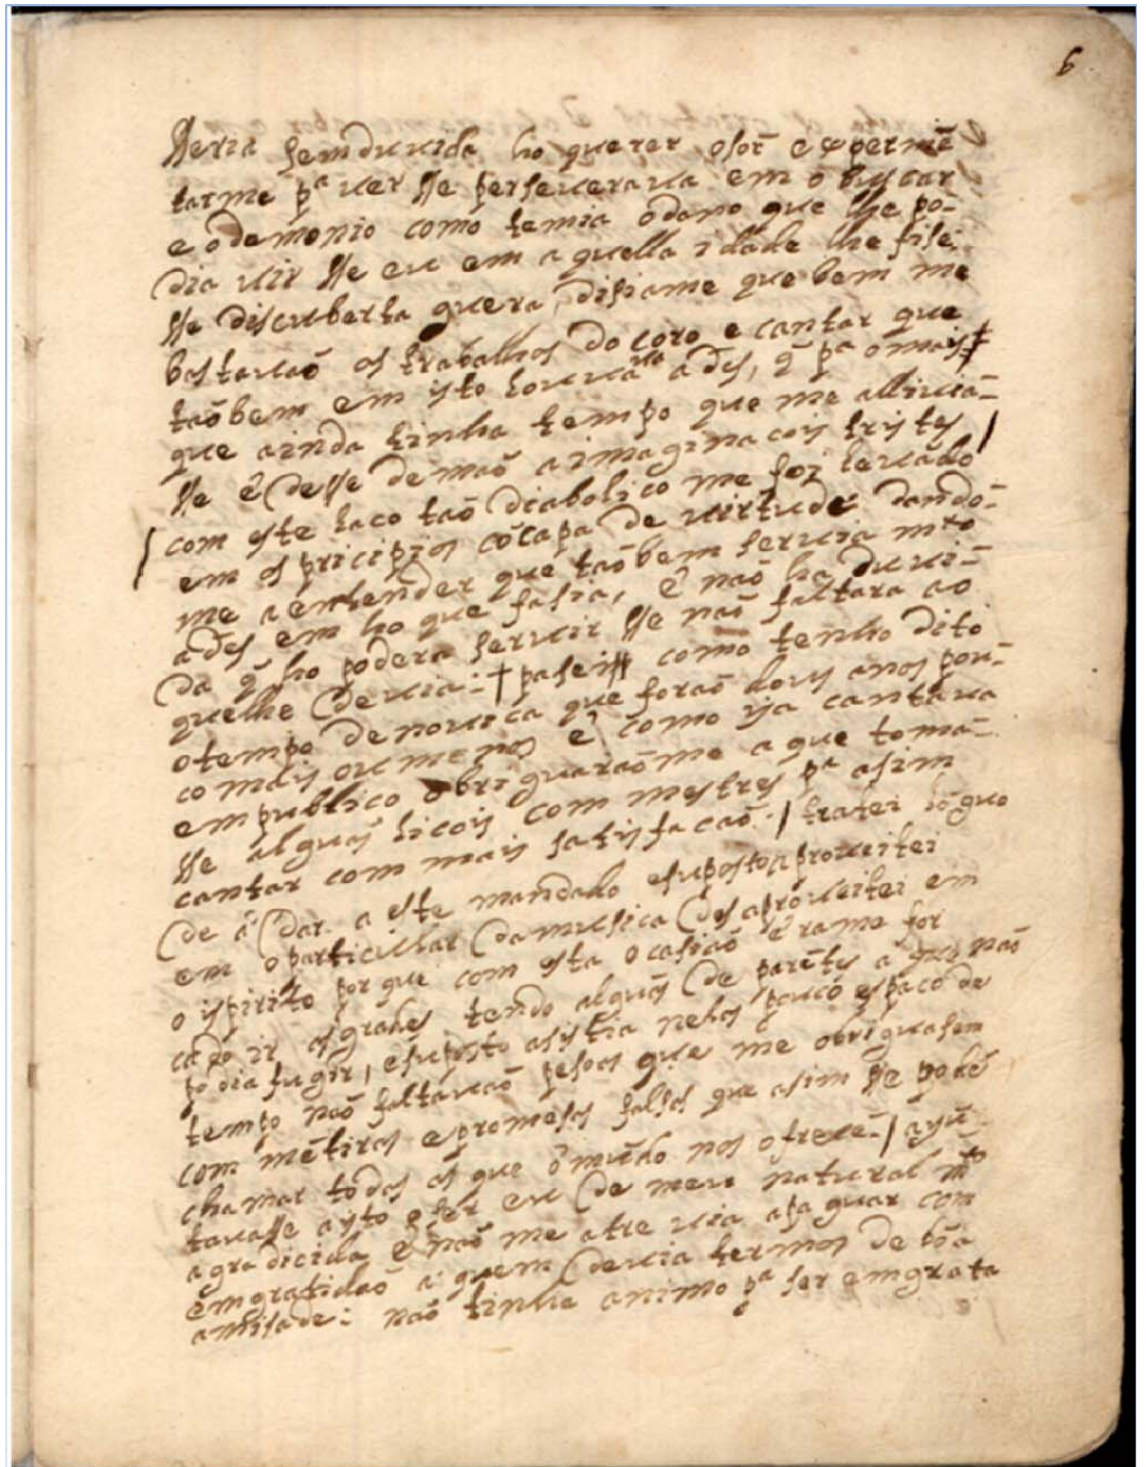 6
Seria sem duvida ho querer o sõr experimẽ
tarme pª ver se perseverava em o buscar
e o demonio como temia o dano que lhe po-
dia vir se eu em aquella idade lhe fise
se discuberta guera, disiame que bem me
bastavaõ os trabalhos do coro e cantar que
taõbem em isto louvava a ds, q̃ pª o mais
que ainda tinha tempo que me alivia-
se e desse de maõ a imaginacois tristes
com este laco taõ diabolico me foi levãdo
em os pricipios cõ capa de virtude dando-
me a entender que taõbem servia mto
a ds em ho que fasia, e naõ ha duvi-
da q̃ ho podera servir se naõ faltara ao
que lhe devia: + pasei como tenho dito
o tempo de novica que foraõ dous anos pou-
co mais ou menos e como ja cantava
em publico obriguaraõme a que toma-
se alguãs licois com mestres pª asim
cantar com mais satisfacaõ / tratei loguo
de dar a este mandado e suposto aproveitei
em o particular da musica desaproveitei em
o ispirito por que com esta ocasiaõ erame for
cado ir as grades tendo alguãs de parẽtes a que naõ
podia fugir, e suposto asistia nelas pouco espaco de
tempo naõ faltavaõ pesoas que me obriguasem
com mẽtiras e promesas falsas que asim se podẽ
chamar todas as que o mũdo nos ofrece / ajũ
tavasse a isto o ser eu de meu natural mto
agradicida e naõ me atrevia a paguar com
emgratidaõ a quem devia termos de boã
amisade: naõ tinha animo pª ser emgrata